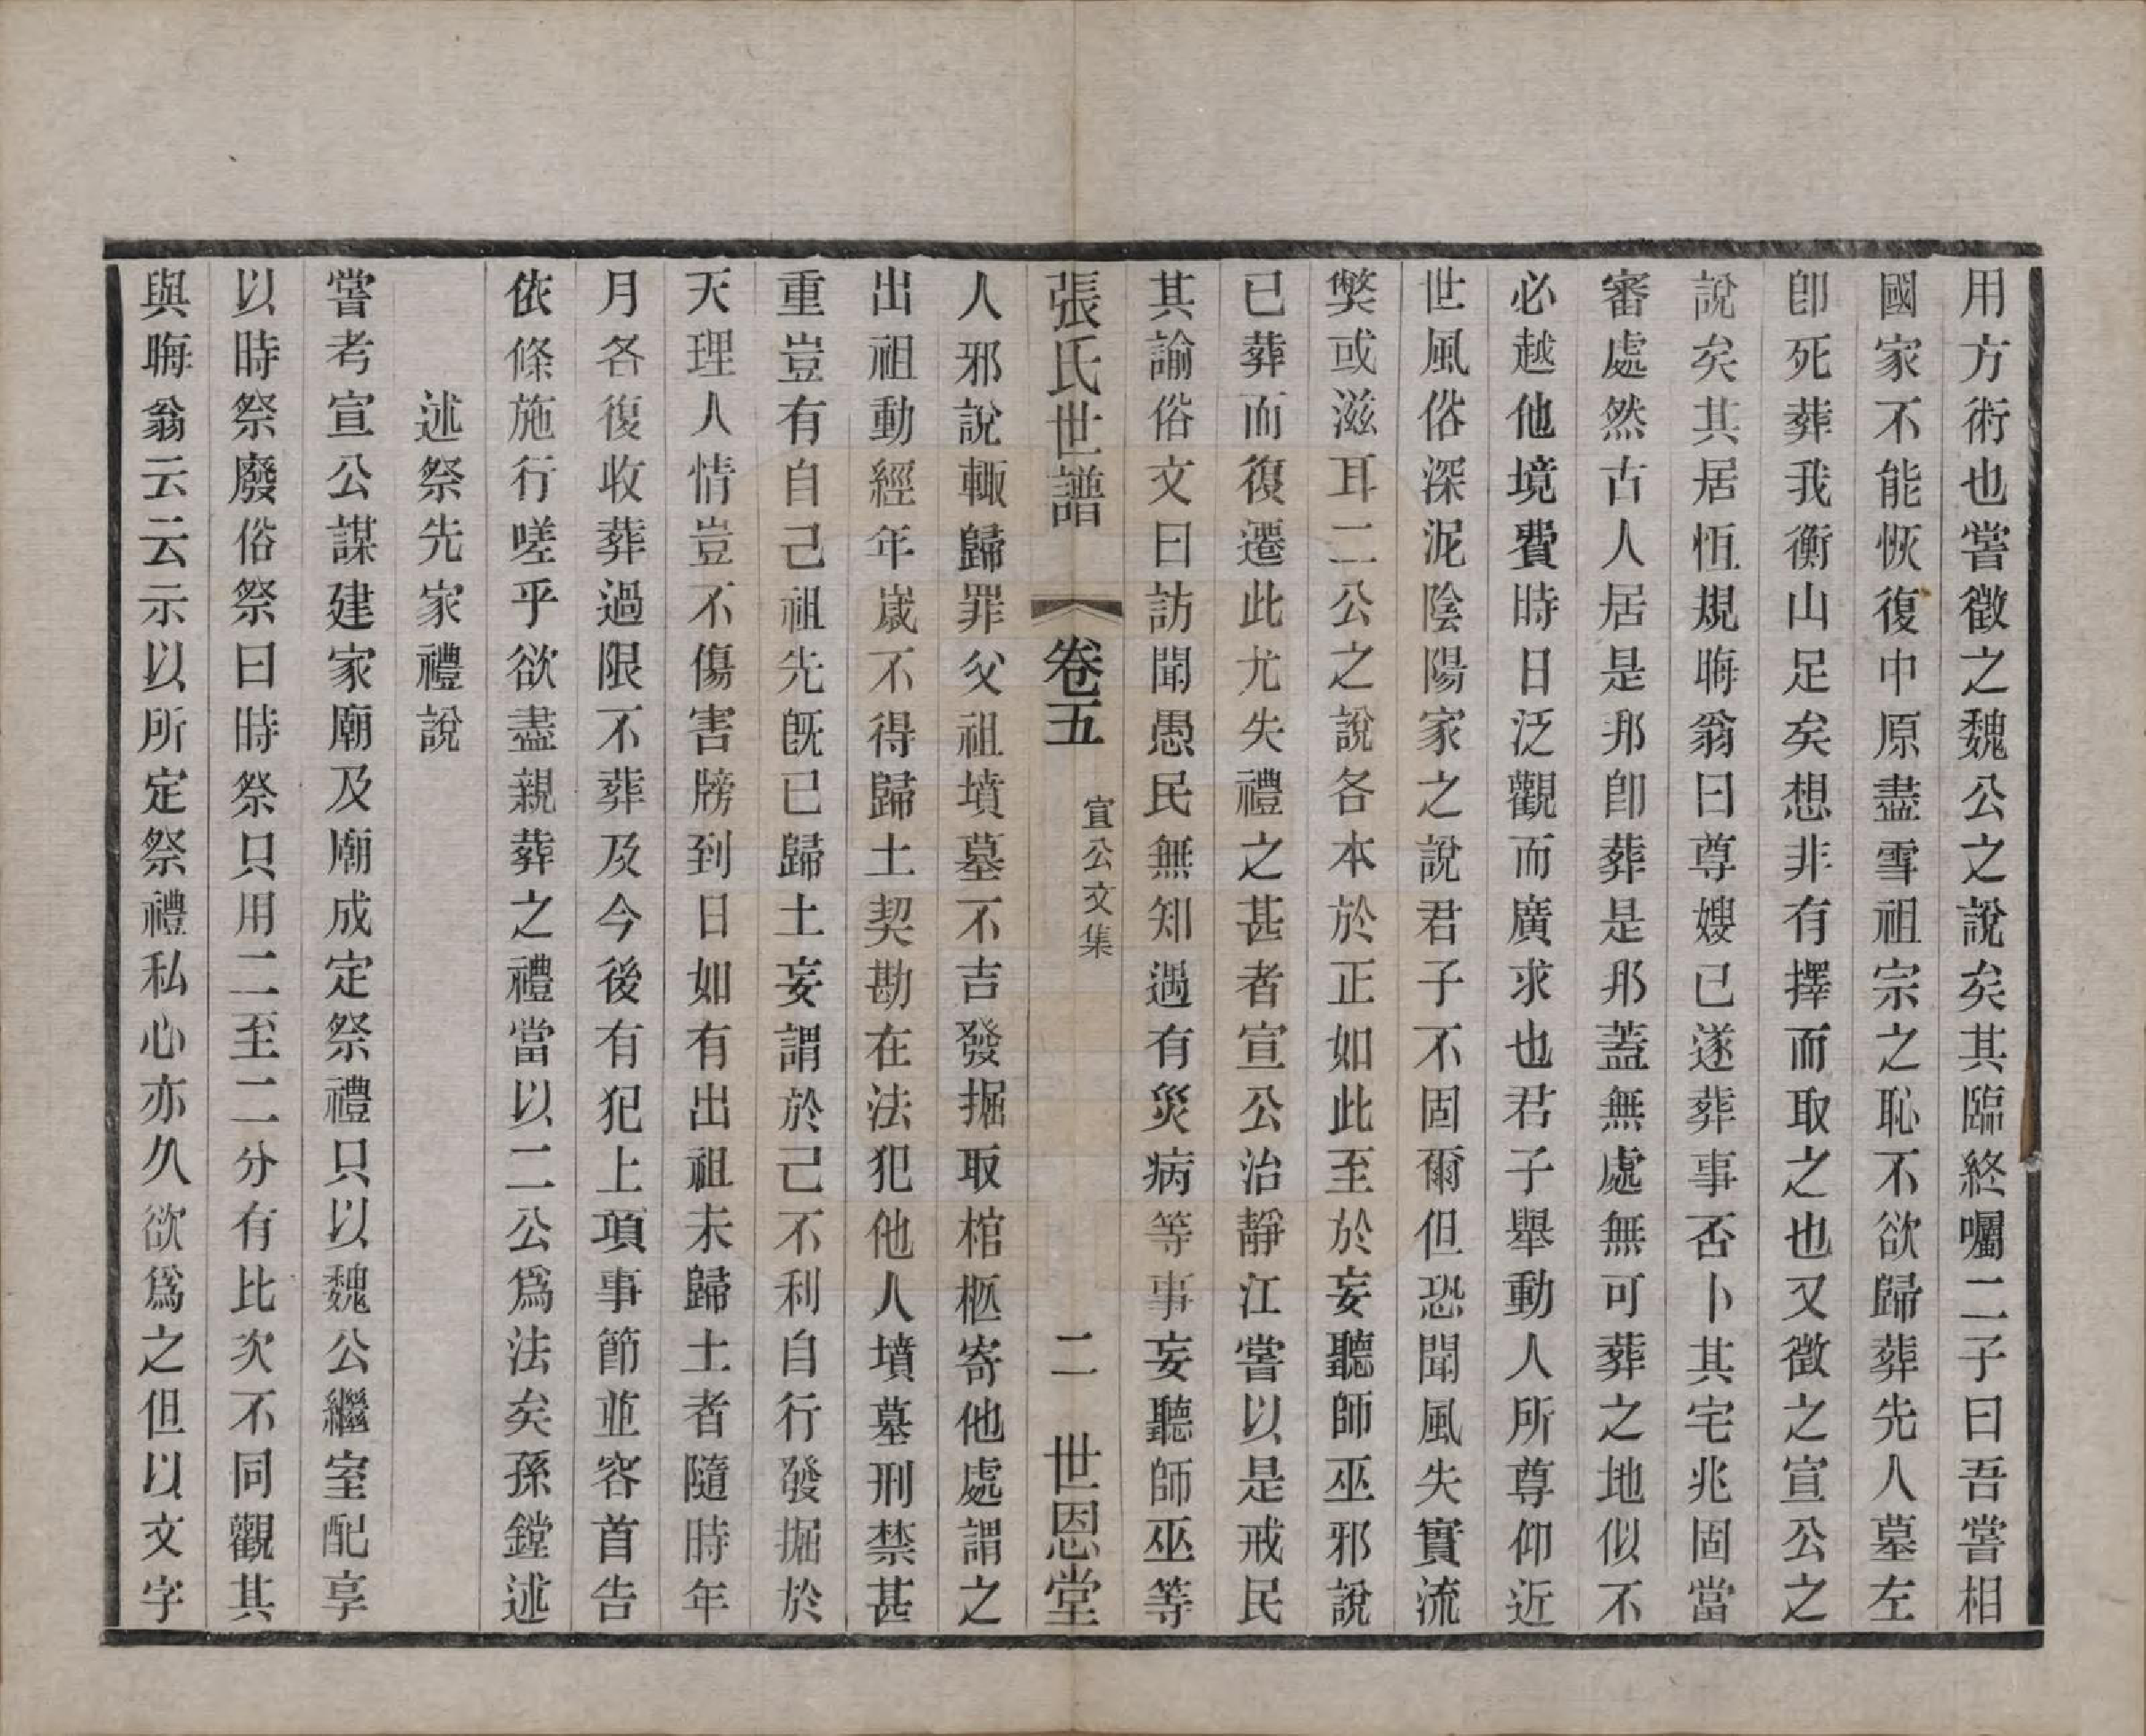 用方術也嘗徵之魏公之說矣其臨終囑二子曰吾嘗相
國家不能恢復中原盡雪祖宗之恥不欲歸葬先人墓左
卽死葬我衡山足矣想非有擇而取之也又徵之宣公之
說矣其居恒規晦翁曰尊嫂已遂葬事否卜其宅兆固當
審處然古人居是邦卽葬是邦蓋無處無可葬之地似不
必越他境費時日泛觀而廣求也君子舉動人所尊仰近
世風俗深泥陰陽家之說君子不固爾但恐聞風失實流
獘或滋耳二公之說各本於正如此至於妄聽師巫邪說
已葬而復遷此尤失禮之甚者宣公治靜江嘗以是戒民
其諭俗文曰訪聞愚民無知遇有災病等事妄聽師巫等
張氏世譜 卷五 宣公文集 二 世恩堂
人邪說輙歸罪父祖墳墓不吉發掘取棺柩寄他處謂之
出祖動經年嵗不得歸土契勘在法犯他人墳墓刑禁甚
重豈有自己祖先旣已歸土妄謂於己不利自行發掘於
天理人情豈不傷害牓到日如有出祖未歸土者隨時年
月各復收葬過限不葬及今後有犯上項事節並容首告
依條施行嗟乎欲盡親葬之禮當以二公爲法矣孫鏜述
述祭先家禮說
嘗考宣公謀建家廟及廟成定祭禮只以魏公繼室配享
以時祭廢俗祭曰時祭只用二至二分有比次不同觀其
與晦翁云云示以所定祭禮私心亦久欲爲之但以文字